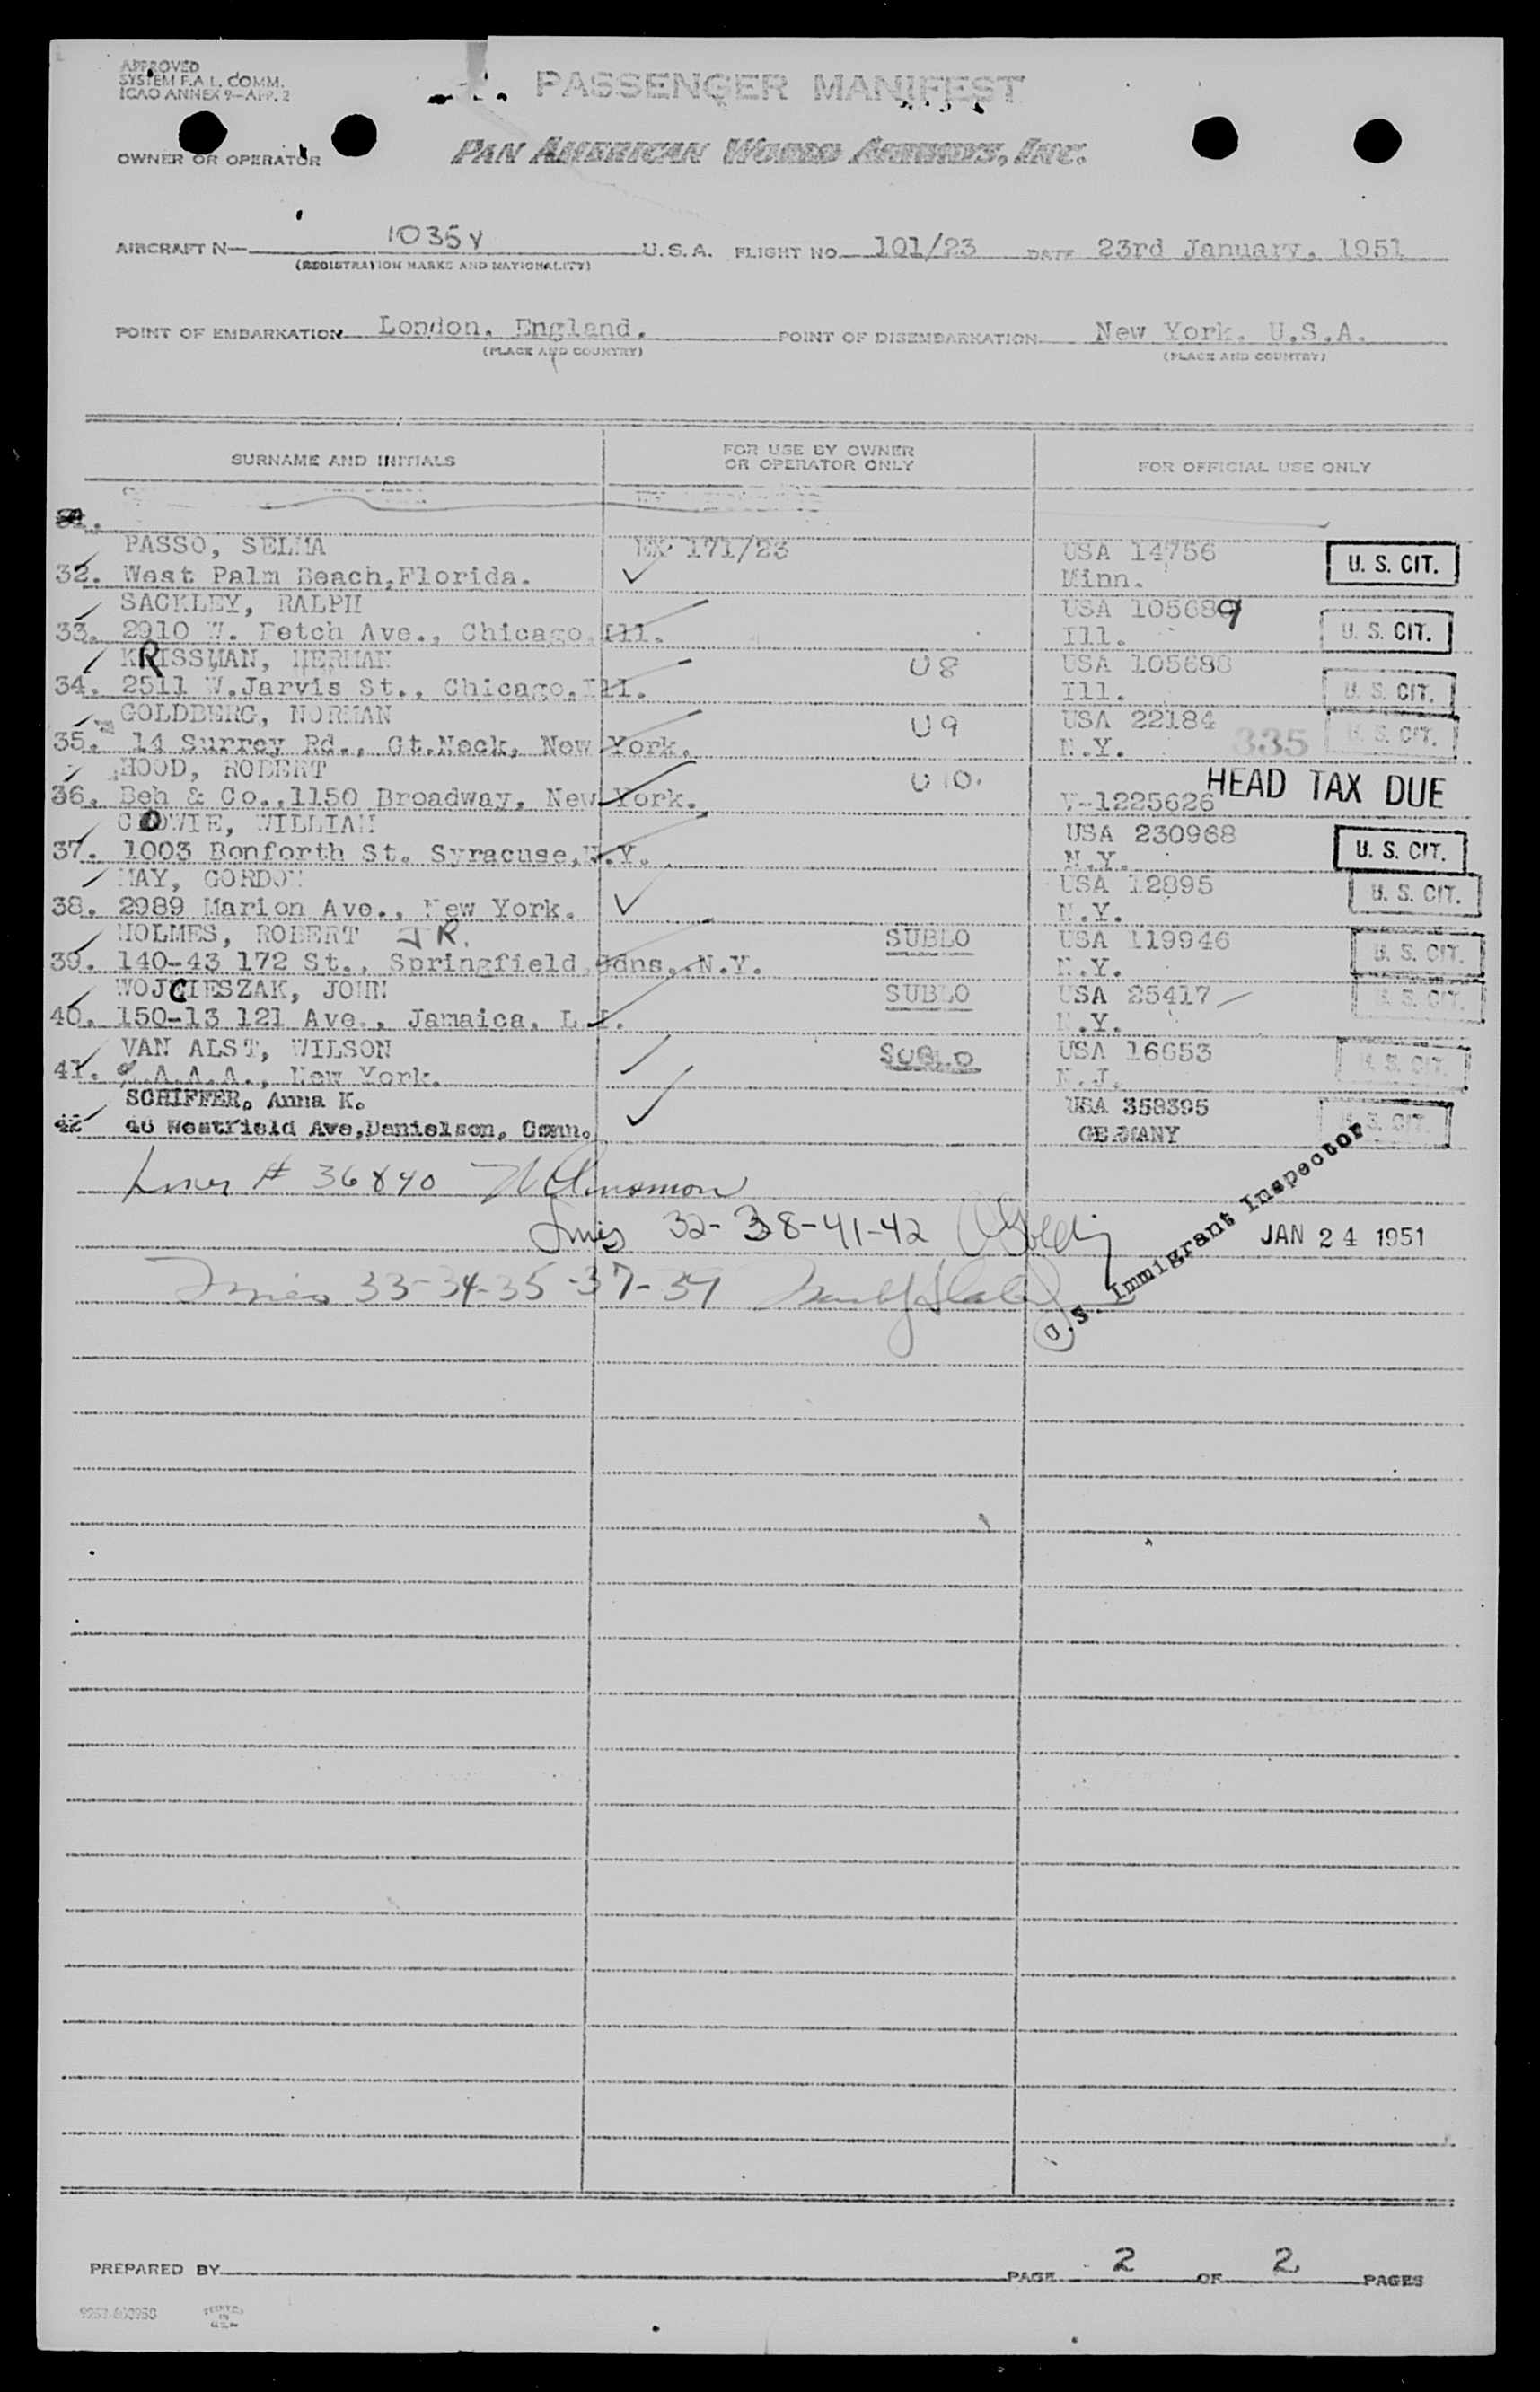 APPROVED
SYSTEM F.A.L. COMM.
ICAO ANNEX 9—APP. 2
PASSENGER MANIFEST
OWNER OR OPERATOR
PAN AMERICAN WORLD AIRWAYS, INC.
AIRCRAFT N— 1035V U.S.A. FLIGHT NO. 101/23 DATE 23rd January, 1951
(REGISTRATION MARKS AND NATIONALITY)
POINT OF EMBARKATION London, England. POINT OF DISEMBARKATION New York. U.S.A.
(PLACE AND COUNTRY) (PLACE AND COUNTRY)
SURNAME AND INITIALS
FOR USE BY OWNER
OR OPERATOR ONLY
FOR OFFICIAL USE ONLY
31.
PASSO, SELMA 171/23 USA 14756 U. S. CIT.
32. West Palm Beach, Florida. Minn.
SACKLEY, RALPH USA 105689 U. S. CIT.
33. 2910 W. Fetch Ave., Chicago, Ill. Ill.
KRISSMAN, HERMAN U8 USA 105688
34. 2511 W. Jarvis St., Chicago, Ill. Ill. U. S. CIT.
GOLDBERG, NORMAN U9 USA 22184 U. S. CIT.
35. 14 Surrey Rd., Gt. Neck, New York. N.Y. 335
HOOD, ROBERT U10. HEAD TAX DUE
36. Beh & Co., 1150 Broadway, New York. V-1225626
COWIE, WILLIAM USA 230968 U. S. CIT.
37. 1003 Bonforth St. Syracuse, N.Y. N.Y.
MAY, GORDON USA 12895 U. S. CIT.
38. 2989 Marion Ave., New York. N.Y.
HOLMES, ROBERT JR. SUBLO USA 119946 U. S. CIT.
39. 140-43 172 St., Springfield Gdns, N.Y. N.Y.
WOJCIESZAK, JOHN SUBLO USA 25417 U. S. CIT.
40. 150-13 121 Ave., Jamaica, L.I. N.Y.
VAN ALST, WILSON SUBLO USA 16653 U. S. CIT.
41. P.A.A.A., New York. N.J.
SCHIFFER, Anna K. USA 358395 U. S. CIT.
42 40 Westfield Ave, Danielson, Conn. GERMANY
# 36840
32-38-41-42 JAN 24 1951
33-34-35-37-39
U.S. Immigrant Inspector
PREPARED BY PAGE 2 OF 2 PAGES
PRINTED
IN